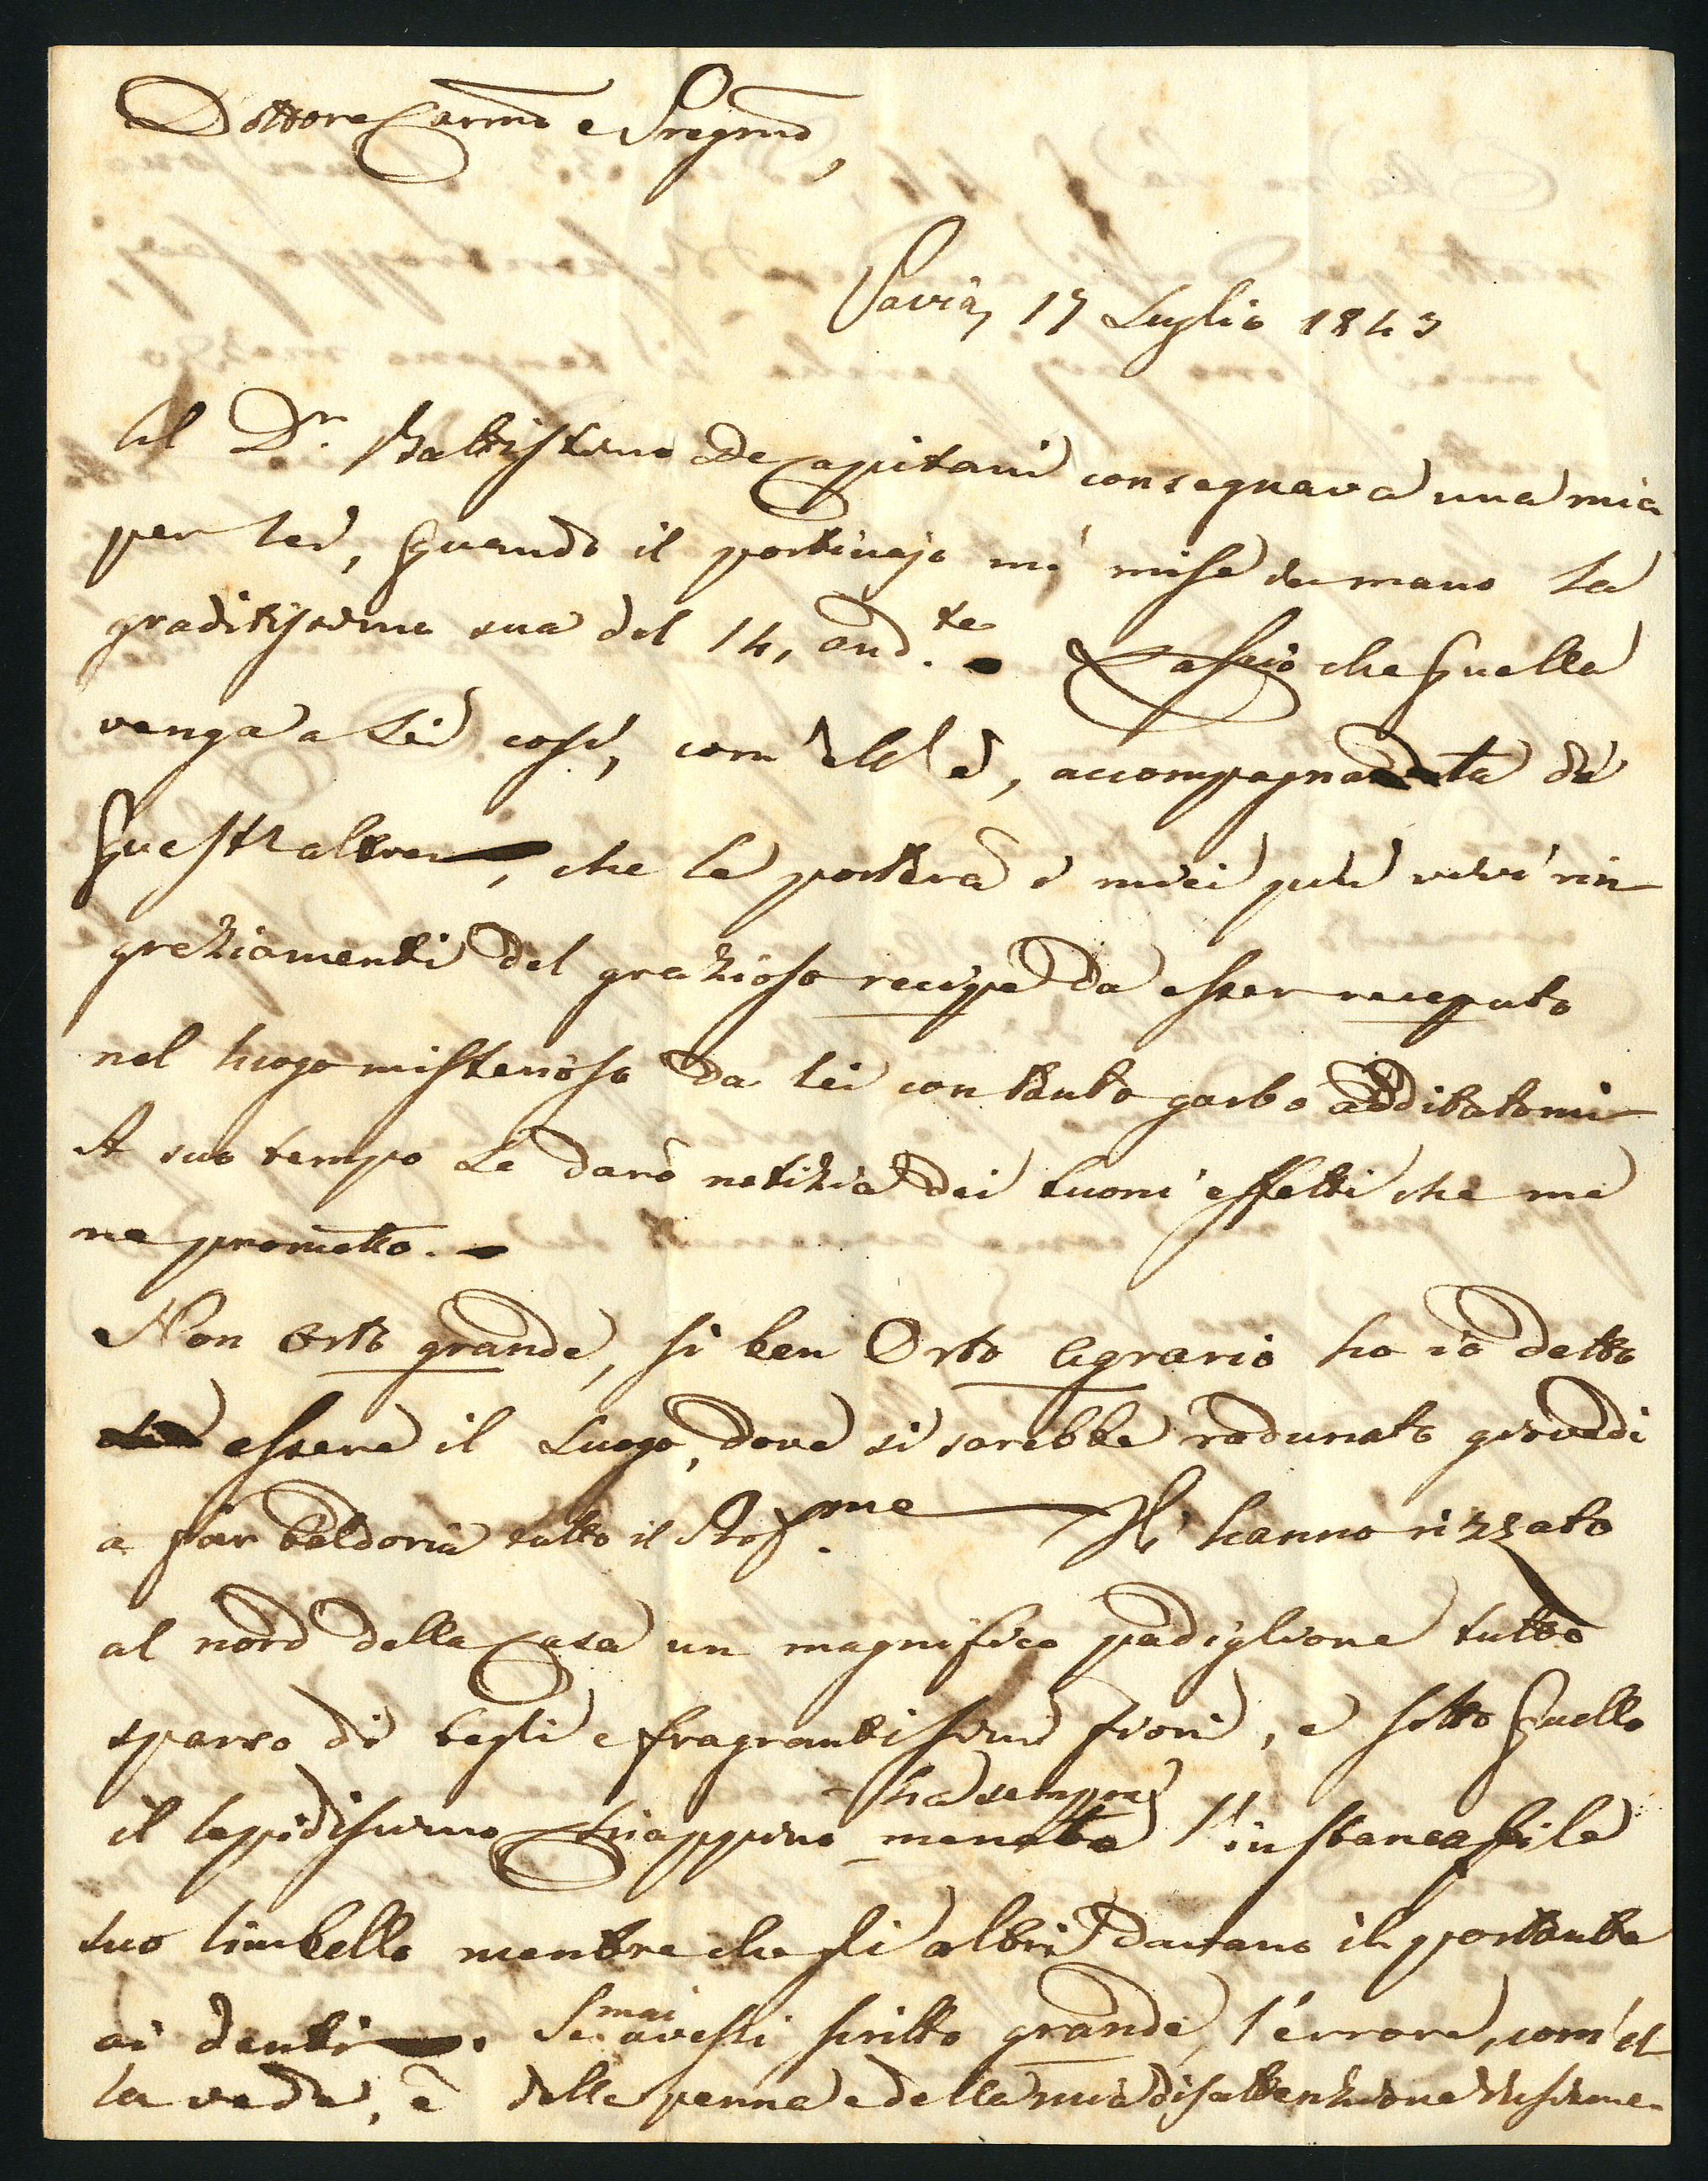 Dottore Carmo e Pregmo,
Pavia, 17 Luglio 1843
Al Dn. Battistino De Capitani consegnava una mia
per Lei, quando il portinajo mi mise in mano la
graditissima sua del 14, and.te Lascio che quella
venga a Lei così, com'ell'è, accompagnata da
quest'altra, che le porterà i miei più vivi rin-
graziamenti del grazioso recipe da esser receputo
nel luogo misterioso da lei con tanto garbo additatomi
A suo tempo Le darò notizia dei buoni effetti che me
ne prometto.
Non Orto grande, si ben Orto Agrario ho io detto
essere il Luogo, dove si sarebbe radunato giovedi
a far baldoria tutto il Prof.me Gli hanno rizzato
al nord della Casa un magnifico padiglione tutto
sparso di begli e fragrantissimi fiori, e sotto quello
il lepidissimo Chiappino ha sempre menato l'instancabile
suo limbello mentre che gli altri davano il portante
ai denti. Se mai avessi scritto grande, l'errore, com'el-
la vede, è della penna e della mia disattenzione insieme.